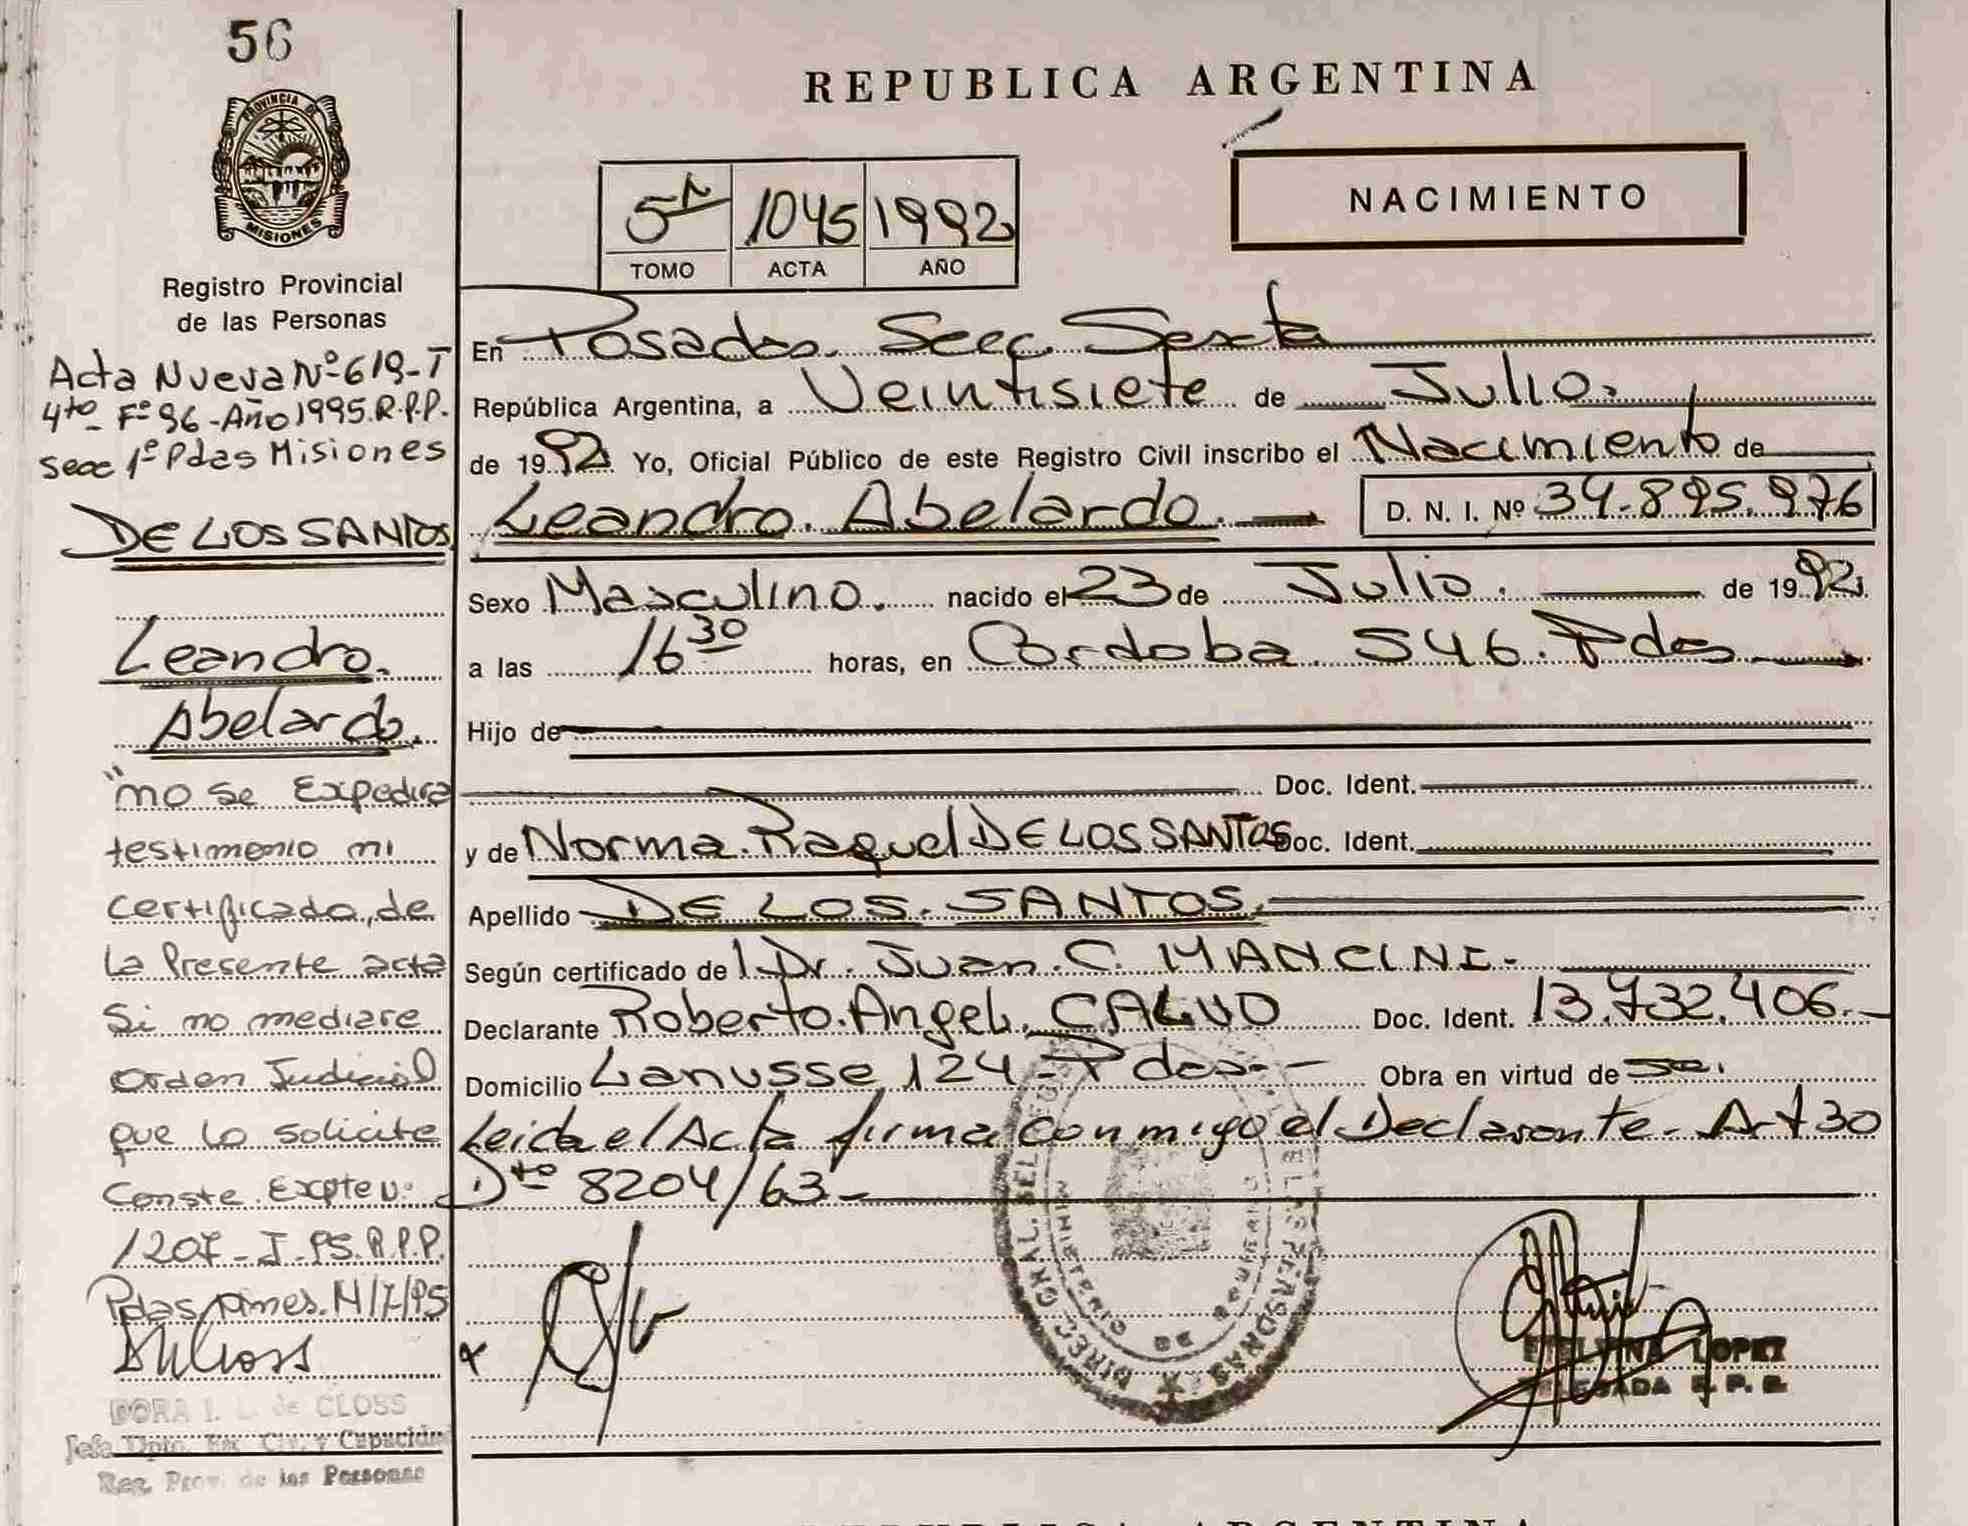 56
PROVINCIA DE
MISIONES
Registro Provincial
de las Personas
Acta Nueva Nº 619-T
4to - Fº 96 - Año 1995. R.P.P.
Secc 1º Pdas Misiones
DE LOS SANTOS
Leandro.
Abelardo.
"no se Expedira
testimonio ni
certificado, de
la Presente acta
Si no mediare
Orden Judicial
que lo solicite
Conste. Expte Nº
1207-J-95. R.P.P.
Pdas, Mnes.
DORA I. L. de CLOSS
Jefe Dpto. Civ. y Capacidad
Reg. Prov. de las Personas
REPUBLICA ARGENTINA
NACIMIENTO
5º 1045 1992
TOMO ACTA AÑO
En Posadas. Secc. Sexta
República Argentina, a Veintisiete de Julio.
de 1992 Yo, Oficial Público de este Registro Civil inscribo el Nacimiento de
Leandro. Abelardo. D. N. I. Nº 34.895.976
Sexo Masculino. nacido el 23 de Julio. de 1992.
a las 16 30 horas, en Cordoba. 546. Pdas
Hijo de
Doc. Ident.
y de Norma. Raquel DE LOS SANTOS Doc. Ident.
Apellido DE LOS. SANTOS.
Según certificado del Dr. Juan. C. MANCINI.-
Declarante Roberto. Angel. CALVO Doc. Ident. 13.732.406.-
Domicilio Lanusse 124 - Pdas.- Obra en virtud de
Leida el Acta firma conmigo el Declarante. Art 30
Dto 8204/63-
DIREC. GRAL. DEL REG. DE LAS PERSONAS
MINISTERIO DE GOBIERNO
ETELVINA LOPEZ
DELEGADA R. P. P.
REPUBLICA ARGENTINA